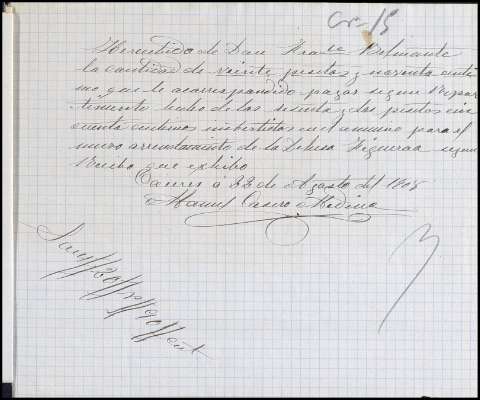 Cª-15
He recibido de Don Fran.co Belmonte
la cantidad de veinte pesetas y noventa centi
mos que le a correspondido pagar segun Repar
timiento hecho de las sesenta y dos pesetas cin
cuenta centimos invertidas en el anuncio para el
nuevo arrendamiento de la Dehesa Higueras segun
Recibo que exhibo
Caceres a 22 de Agosto del 1905
Manuel Casero Medina
Son 20 P 90 cent